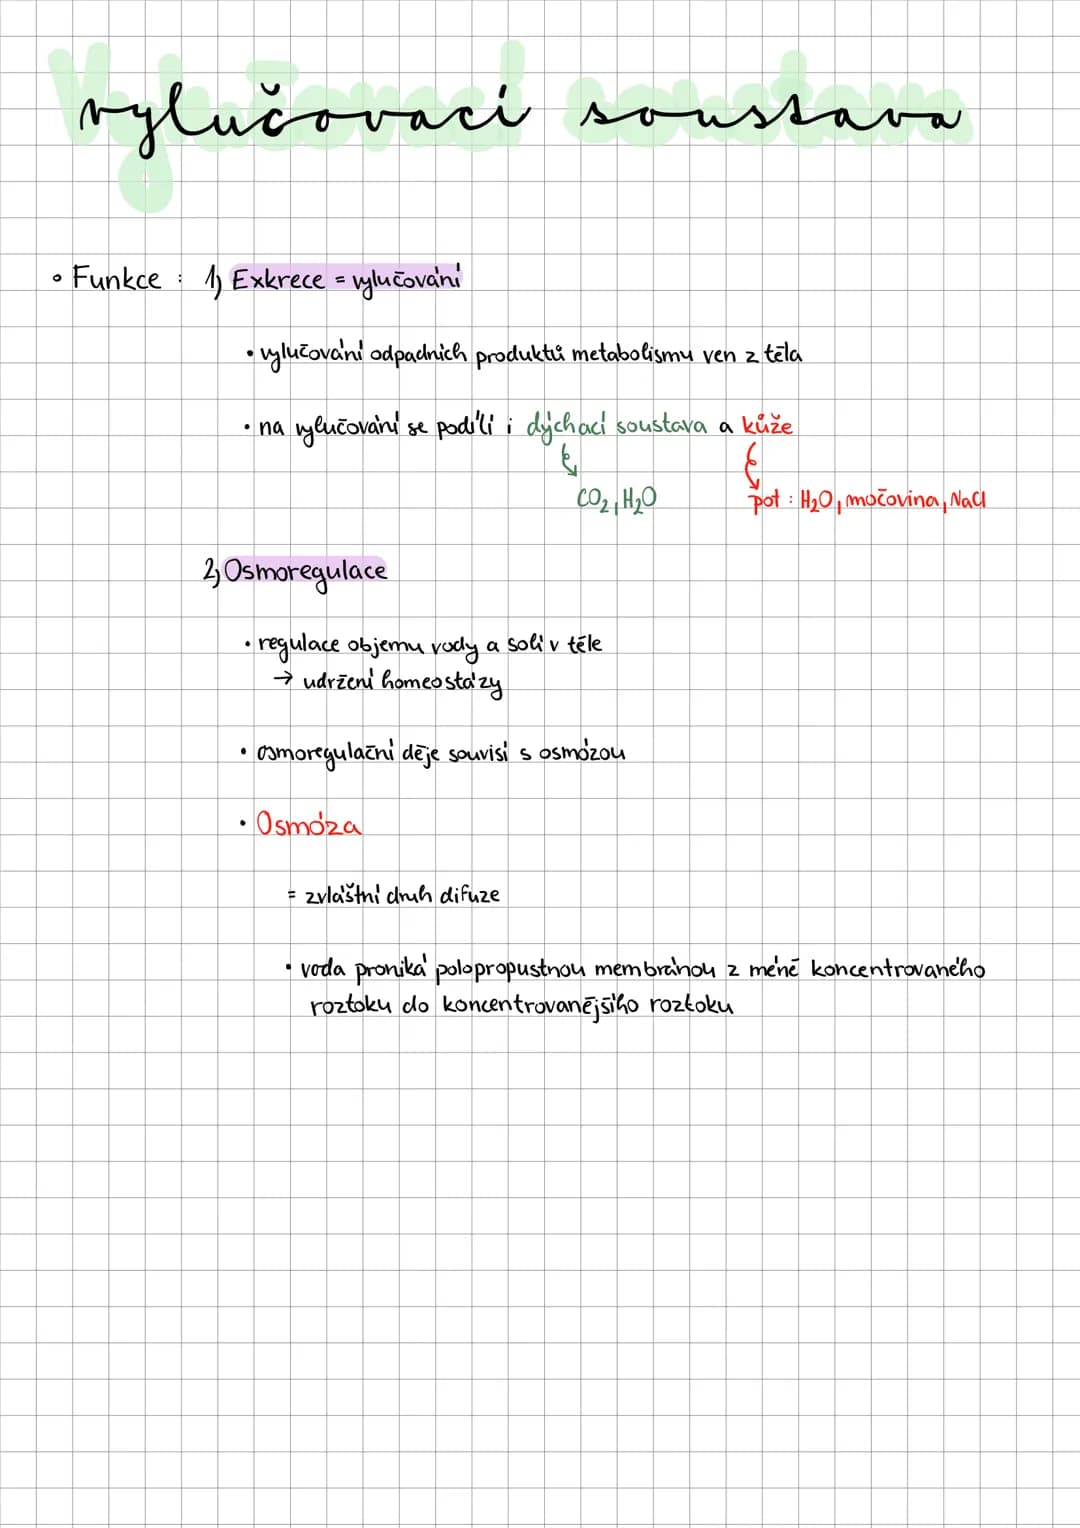 vylučovací soustava
• Funkce : 1) Exkrece = vylučování
• vylučování odpadních produktů metabolismu ven z těla
• na vylučování se podílí i dýchací soustava a kůže
CO₂, H₂O
pot : H₂O, močovina, NaCl
2) Osmoregulace
• regulace objemu vody a soli v těle
→ udržení homeostázy
• osmoregulační děje souvisí s osmózou
• Osmóza
= zvláštní druh difuze
• voda proniká polopropustnou membránou z méně koncentrovaného
roztoku do koncentrovanějšího roztoku